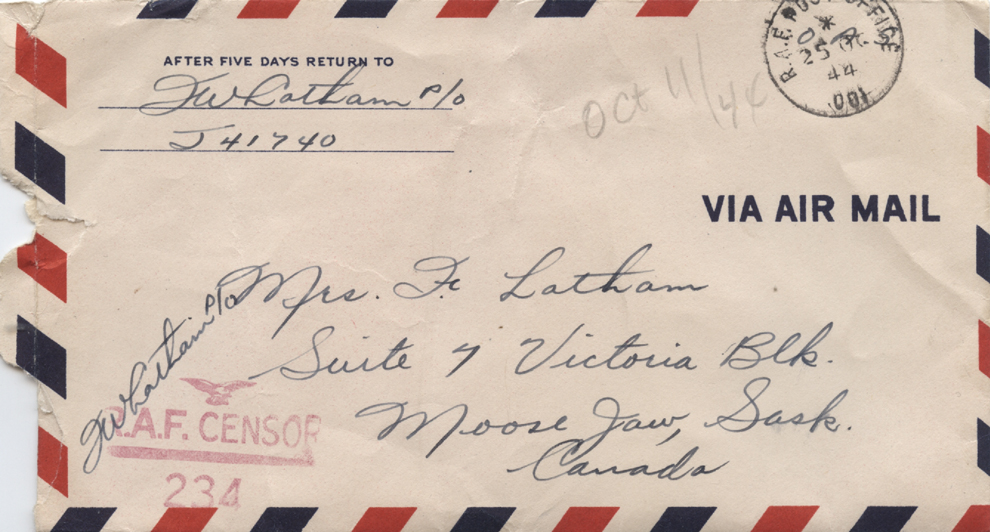 AFTER FIVE DAYS RETURN TO
FW Latham P/O
J41740
Oct 11/44
R.A.F. POST OFFICE
*
25 OC
44
001
VIA AIR MAIL
Mrs. F. Latham
Suite 7 Victoria Blk.
Moose Jaw, Sask.
Canada
FW Latham P/O
R.A.F. CENSOR
234